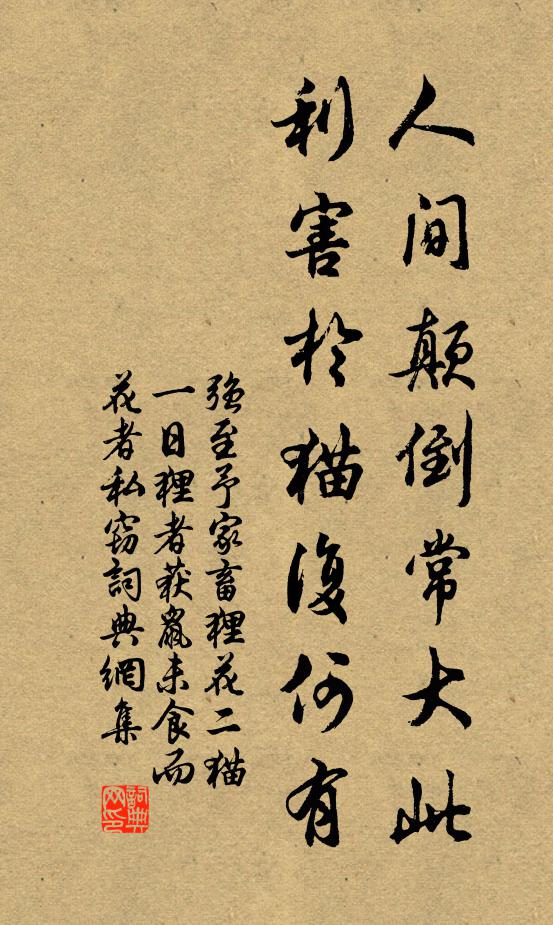 人间颠倒常大此
利害於猫復何有
强至予家畜狸花二猫
一日狸者获鼠未食而
花者私窃詞典網集
詞典网印